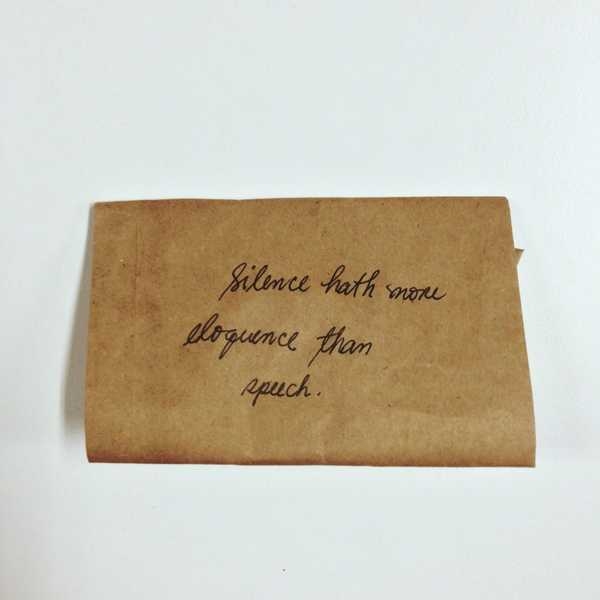 Silence hath more
eloquence than
speech.